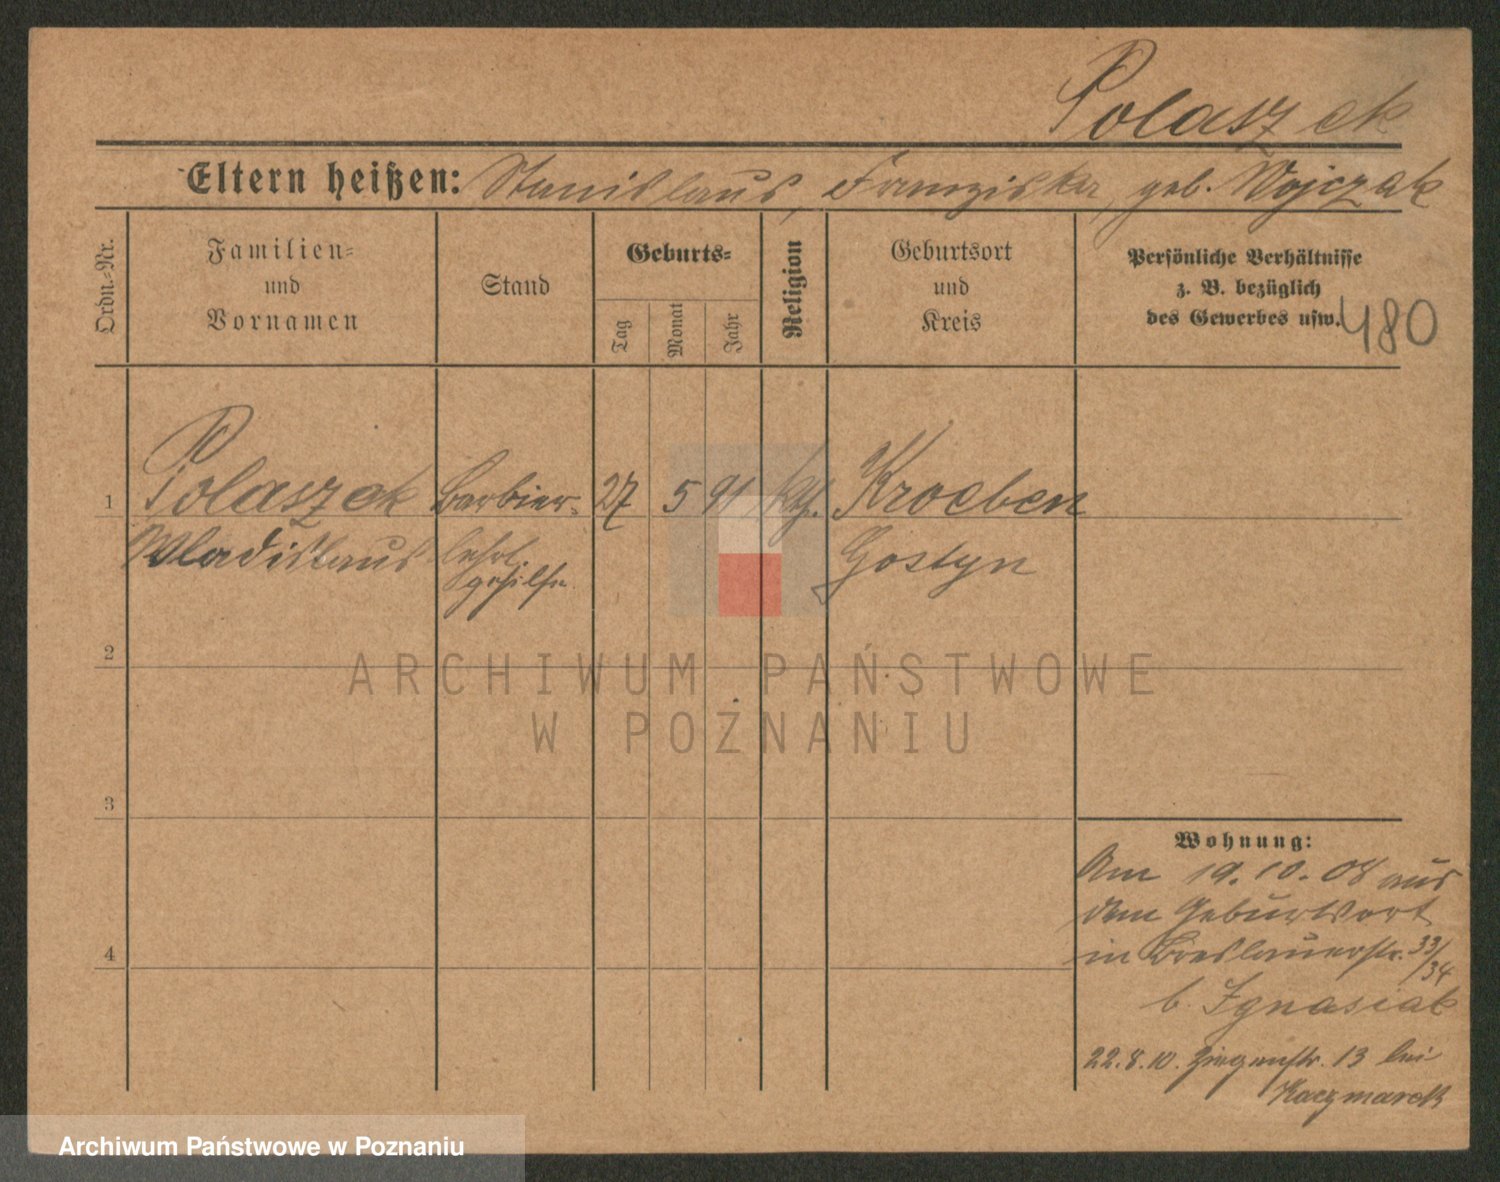 Polaszek
Eltern heißen: Stanislaus, Franziska, geb. Wojczak
Ordn.-Nr.
Familien=
und
Vornamen
Stand
Geburts=
Tag
Monat
Jahr
Religion
Geburtsort
und
Kreis
Persönliche Verhältnisse
z. B. bezüglich
des Gewerbes usw.
480
1 Polaszek Barbier- 27 5 91 kth. Kroeben
Wladislaus lehrl. Gostyn
gehilfe
2
ARCHIWUM PAŃSTWOWE
W POZNANIU
3
Wohnung:
Am 19.10.08 aus
dem Geburtsort
in Breslauerstr. 33/34
4
b. Ignasiak
22.8.10. Ziegenstr. 13 bei
Kaczmarek
Archiwum Państwowe w Poznaniu